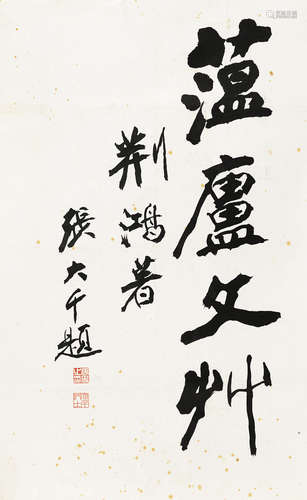 蕰廬文艸
荆鴻著
張大千題